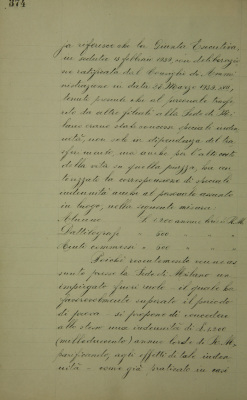 374
ja riferisce che la Giunta Esecutiva,
in seduta 13 febbraio 1939, con deliberazio
ne ratificata dal Consiglio di Ammi
nistrazione in data 24 Marzo 1939, XVII,
tenute presente che al personale trasfe
rito da altre filiali alla Sede di Mi
lano erano state concesse speciali inden
nità, non solo in dipendenza del tra
sferimento, ma anche per l'alto costo
della vita su quella piazza, ha au
torizzato la corresponsione di speciali
indennità anche al personale assunto
in luogo, nella seguente misura:
Dattilografi " 900
Aiuti commessi " 500
Poichè recentemente venne as
sunto presso la Sede di Milano un
impiegato fuori ruolo - il quale ha
favorevolmente superato il periodo
di prova - si propone di concedere
allo stesso una indennità di L. 1.200
(milleduecento) annue lorde di R.M.
parificando, agli effetti di tale inden
nità - come già praticato in casi